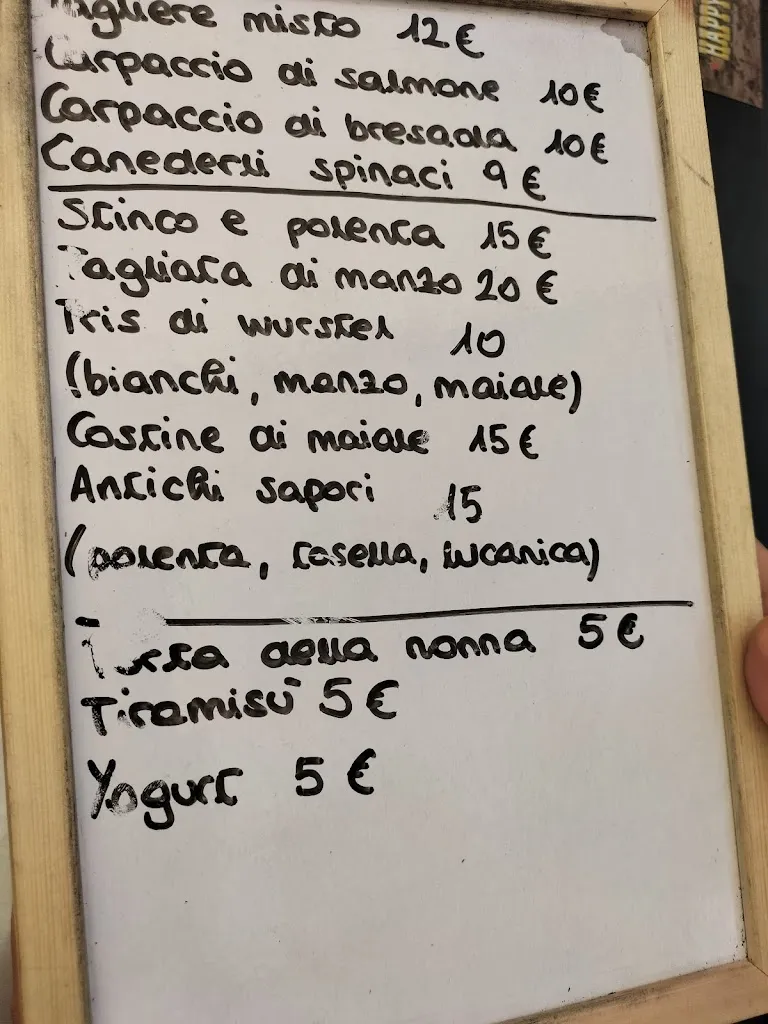 Tagliere misto 12€
Carpaccio di salmone 10€
Carpaccio di bresaola 10€
Canederli spinaci 9€
Stinco e polenta 15€
Tagliata di manzo 20€
Tris di wurstel 10
(bianchi, manzo, maiale)
Costine di maiale 15€
Antichi sapori 15
(polenta, tosella, lucanica)
Torta della nonna 5€
Tiramisù 5€
Yogurt 5€
HAPPY